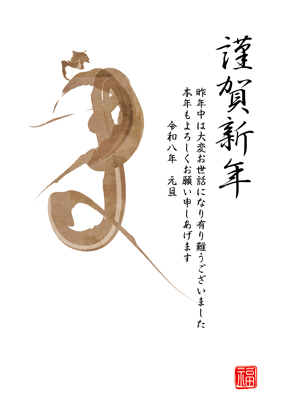 謹賀新年
昨年中は大変お世話になり有り難うございました
本年もよろしくお願い申しあげます
令和八年 元旦
福